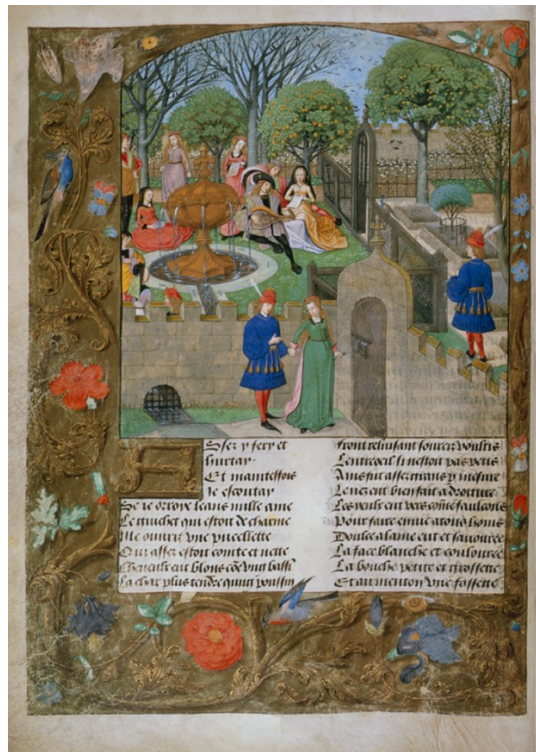 Assez y fery et
hurtay.
Et mainteffois
Je escoutay
Se je orroye leans nulle ame
Le guichet qui estoit de charme
Me ouvrit une pucellette
Qui assez estoit cointe et nette
Cheveulx eut blons côe ung bassĩ
La char plus tendre quung poussin
front reluisant sourcix voultis
Lentreoeil si nestoit pas petis
Ains fut assez grans p mesure
Le nez eut bien fait a droiture
Les yeulx eut vers côme faulcons
Pour faire envie a tous homs
Doulce alaine eut et savouree
La face blanche et coulouree
La bouche petite et grossette
Et au menton une fossette